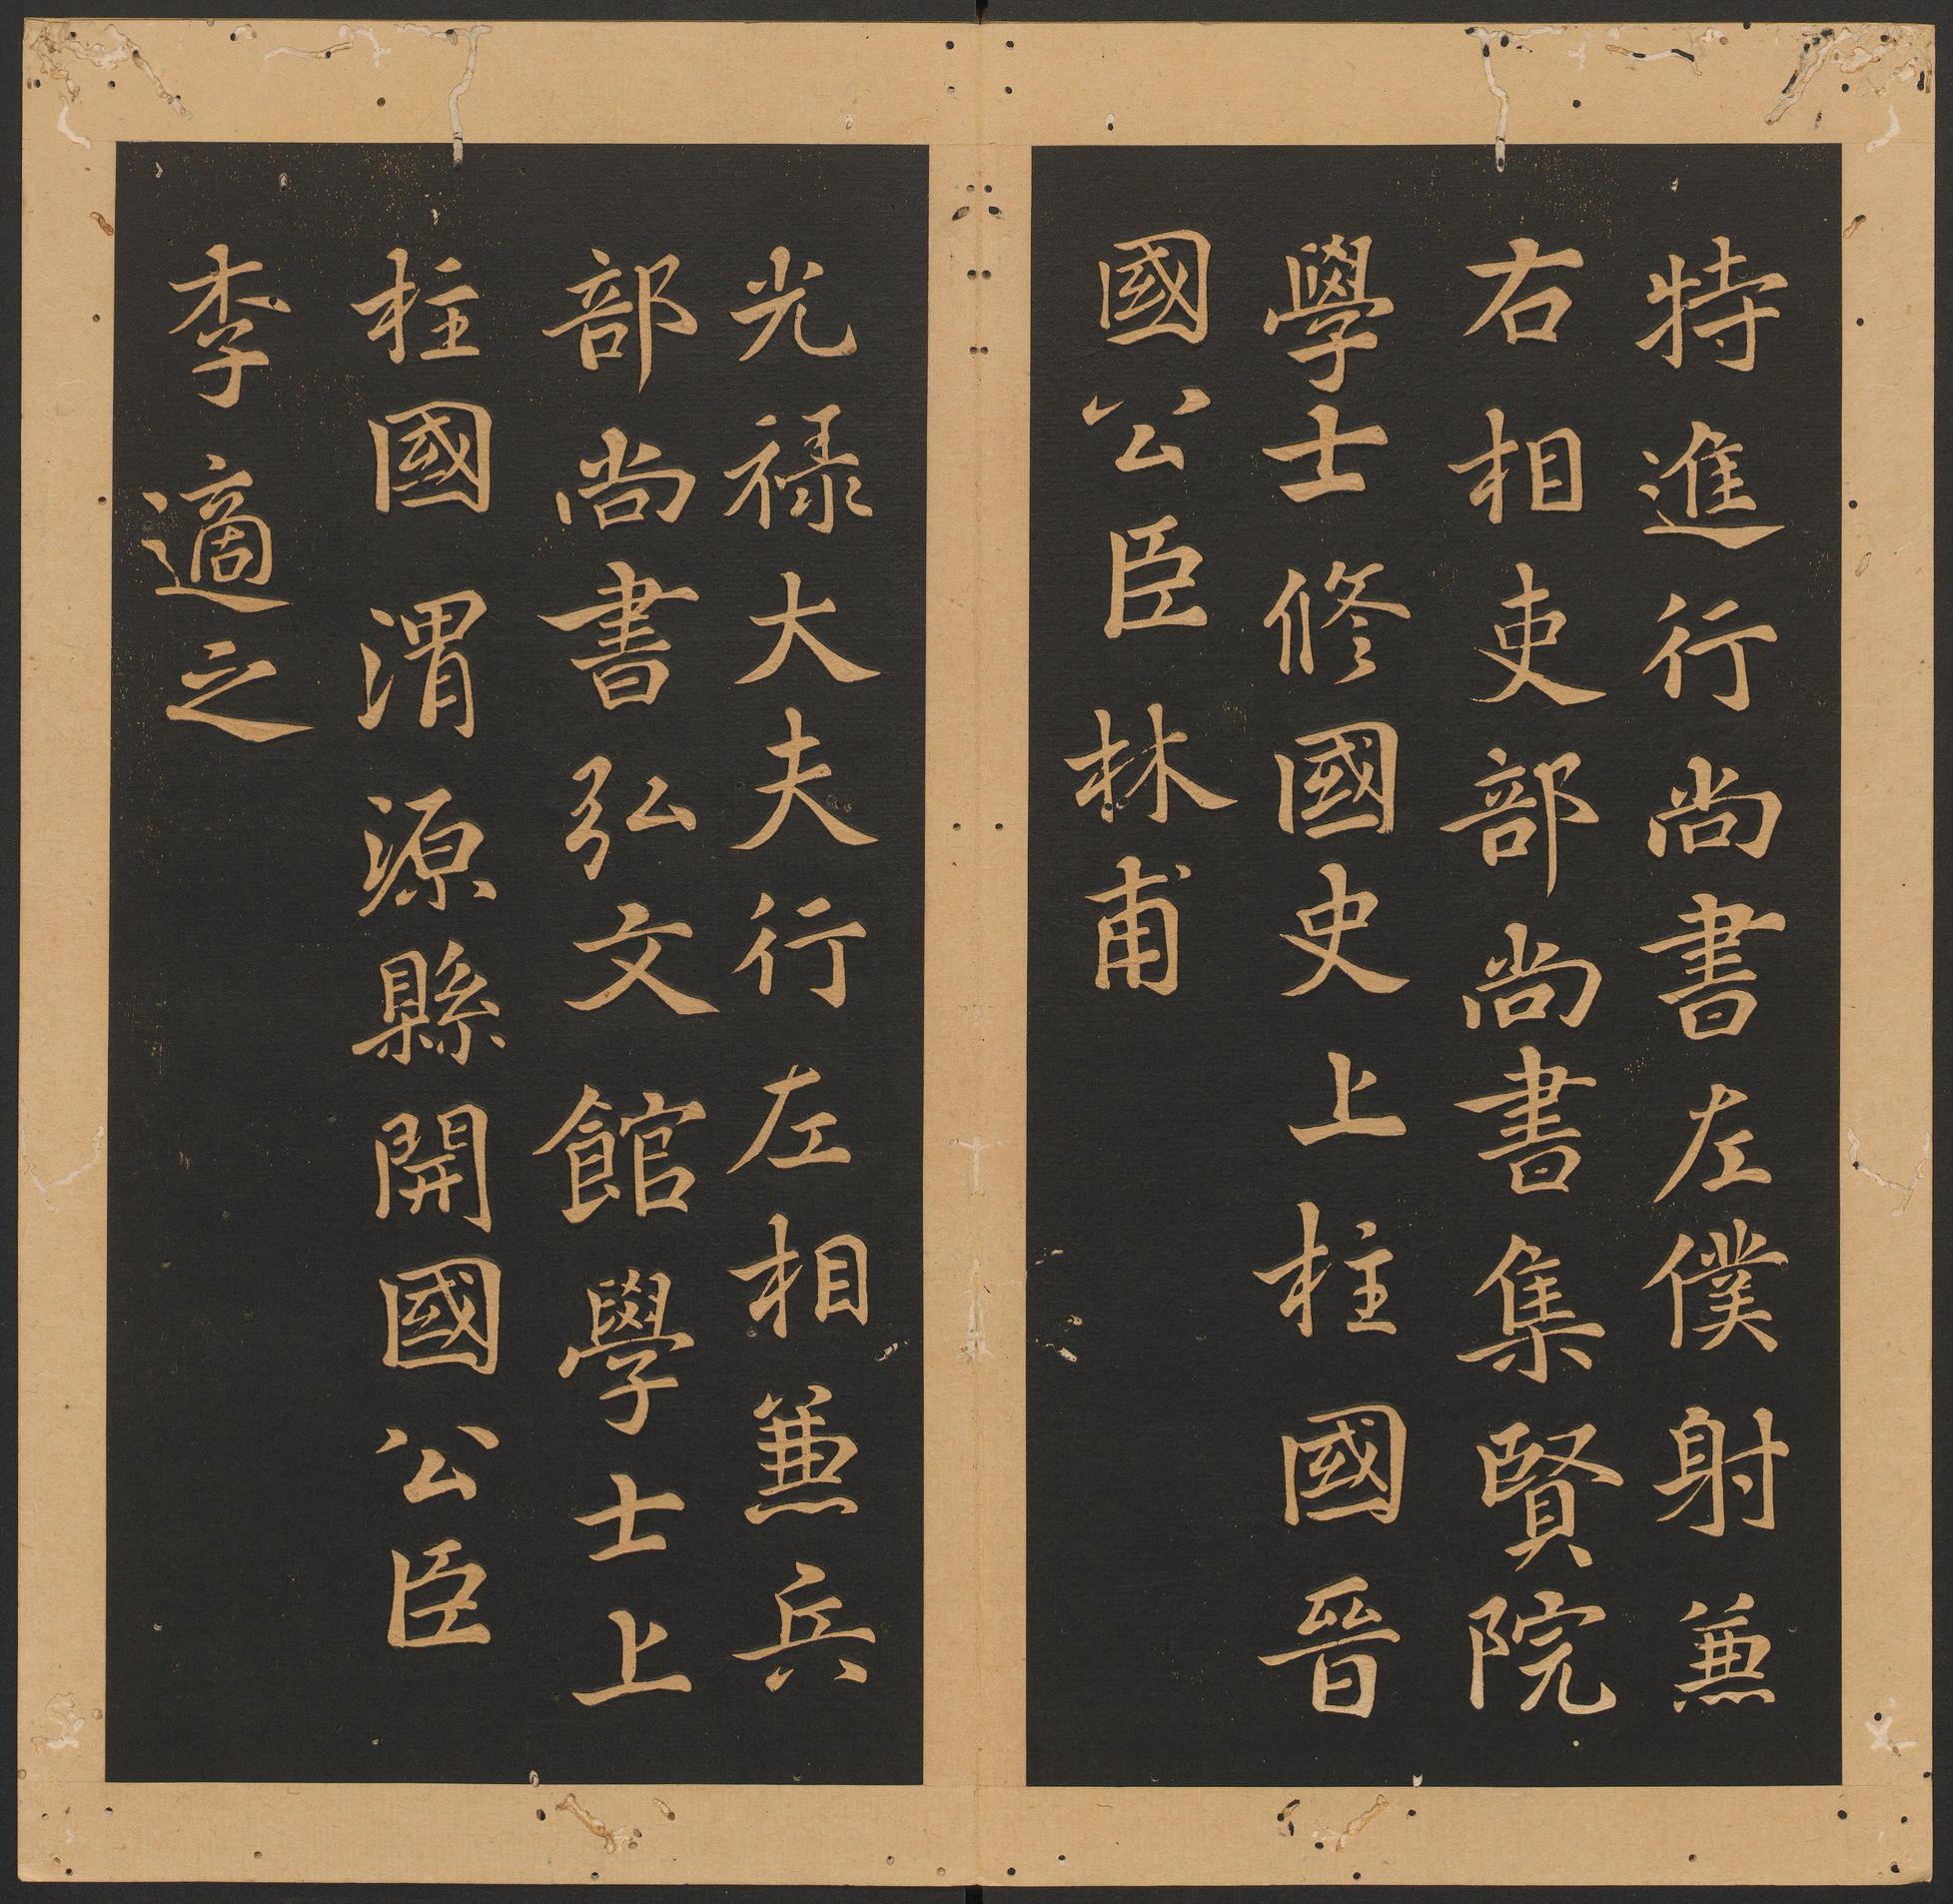 特進行尚書左僕射兼
右相吏部尚書集賢院
學士修國史上柱國晉
國公臣林甫
光祿大夫行左相兼兵
部尚書弘文館學士上
柱國渭源縣開國公臣
李適之